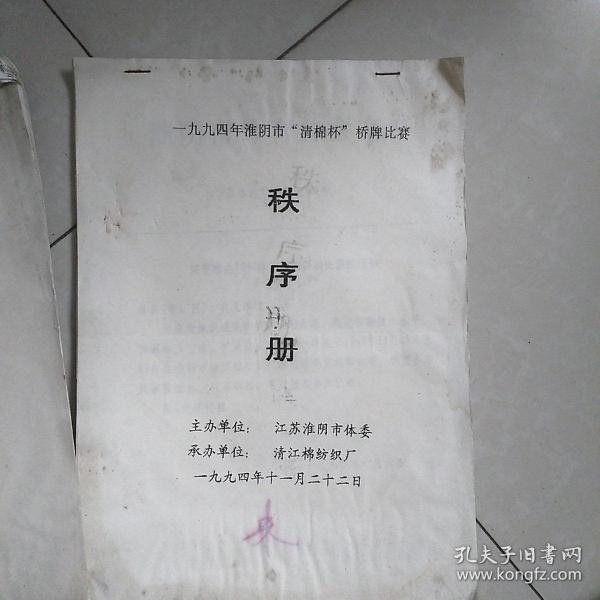 一九九四年淮阴市“清棉杯”桥牌比赛
秩
序
册
主办单位：江苏淮阴市体委
承办单位：清江棉纺织厂
一九九四年十一月二十二日
孔夫子旧书网
www.kongfz.com